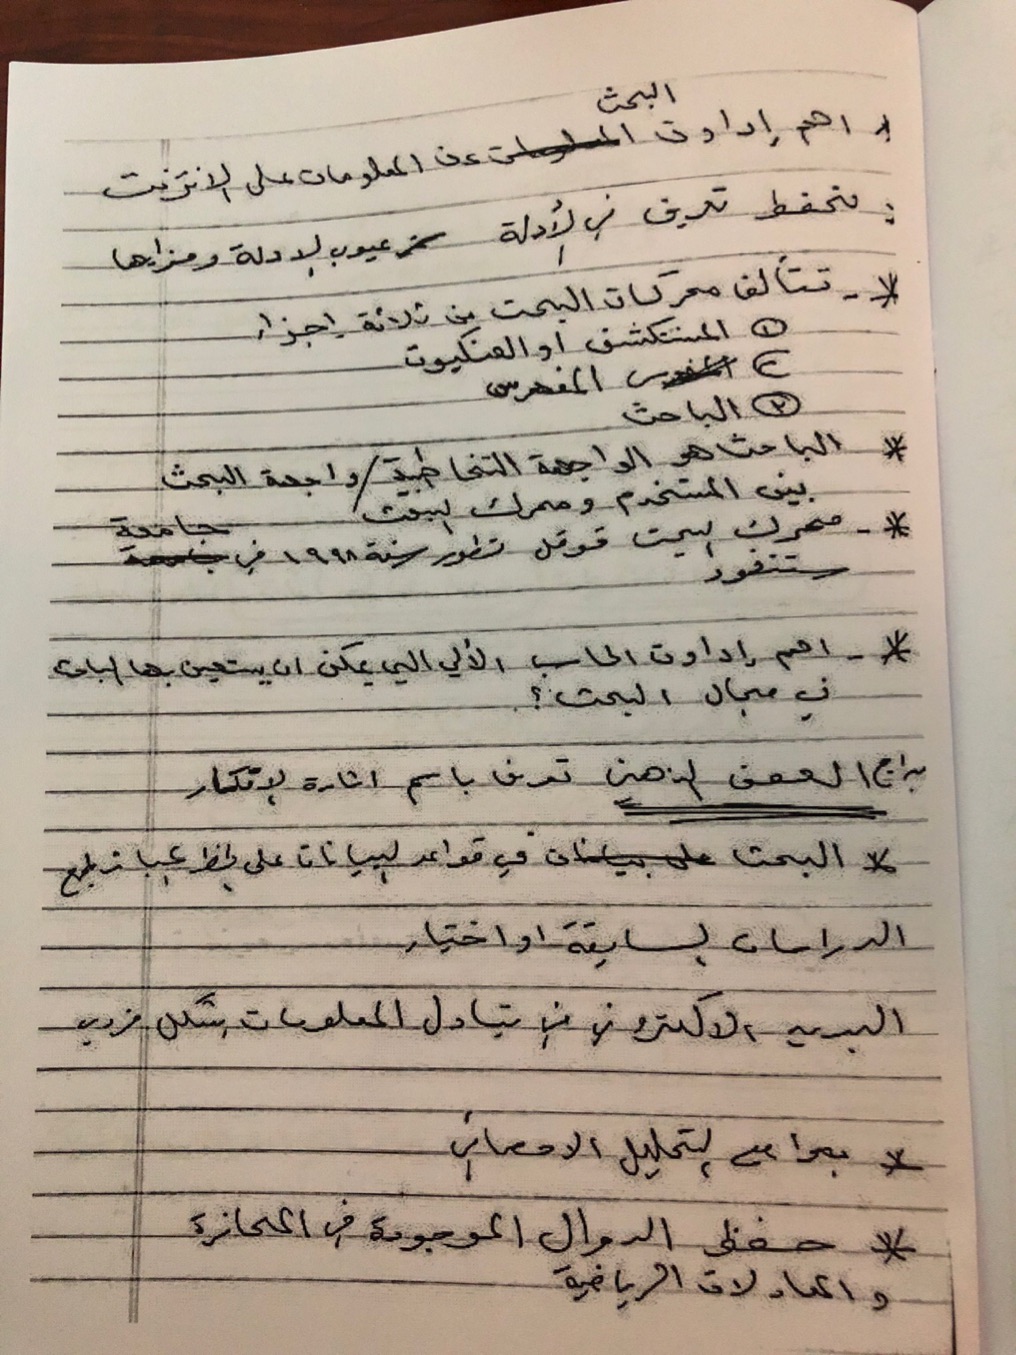 البحث
* اهم إداوت عن المعلومات على الانترنت
: نحفظ تعريف في الأدلة عيوب الادلة ومزايها
* - تتألف محركات البحث من ثلاثة إجزاء
① المستكشف او العنكبوت
② المفهرس
③ الباحث
* الباحث هو الواجهة التخاطبية / واجهة البحث
بين المستخدم ومحرك البحث
* - محرك البحث قوقل تطور سنة ١٩٩٨ في جامعة
ستنفورد
* - اهم إداوت الحاسب الألي التي يمكن ان يستعين بها الباحث
في مجال البحث؟
برامج العصف الذهني تعرف باسم اثارة الافكار
* البحث في قواعد البيانات على الخط
الدراسات السابقة او اختيار
البريد الالكتروني في تبادل المعلومات بشكل فردي
* برامج التحليل الاحصائي
* حفظ الدوال الموجودة في
و المعادلات الرياضية